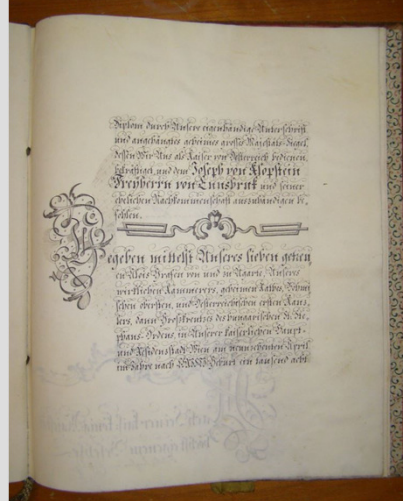 Diplom durch Unsere eigenhändige Unterschrift
und angehängtes geheimes großes Majestäts-Siegel,
dessen Wir Uns als Kaiser von Oesterreich bedienen,
bekräftiget, und dem Joseph von Klopstein
Freyherrn von Ennsbruk und seiner
ehelichen Nachkommenschaft auszuhändigen be,
fohlen.
Gegeben mittelst Unseres lieben getreu
en Alois Grafen von und in Ugarte, Unseres
wirklichen Kämmerers, geheimen Rathes, Böhmi
schen obersten, und Oesterreichischen ersten Kanz
lers, dann Großkreutzes des hungarischen h. Ste
phans-Ordens, in Unserer kaiserlichen Haupt-
und Residenzstadt Wien am neunzehnten April
im Jahre nach Geburt ein tausend acht